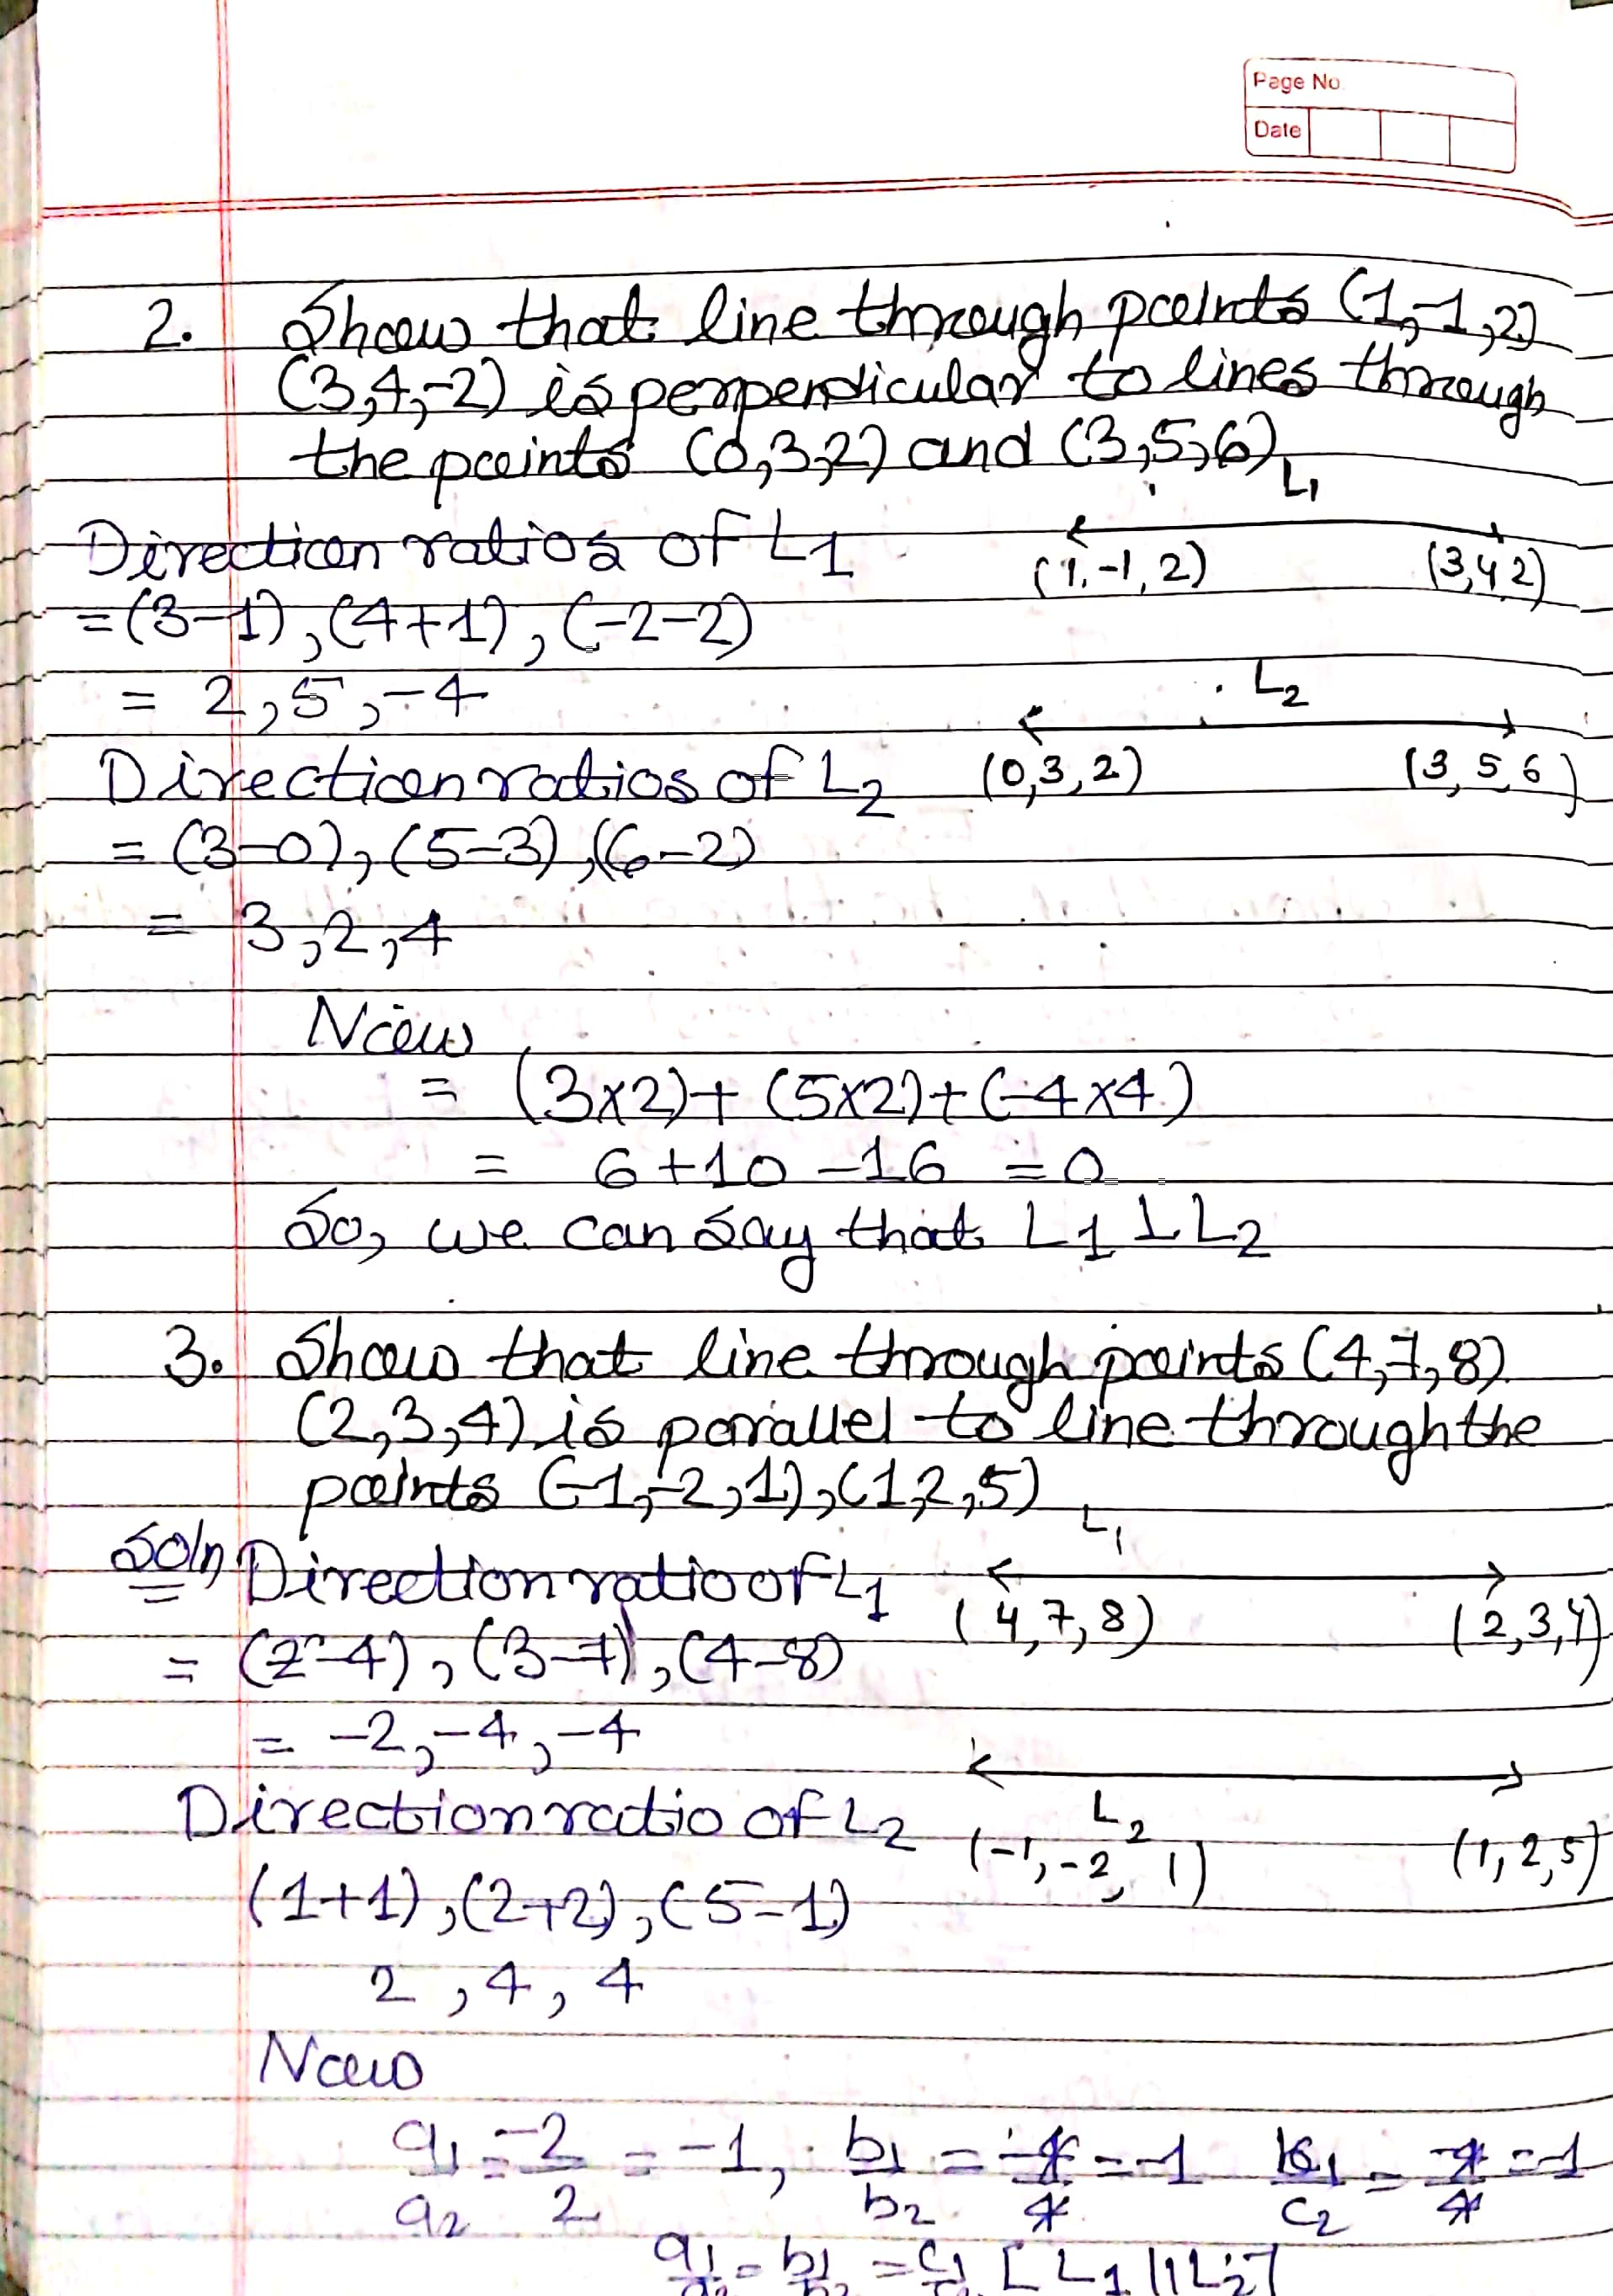 Page No.
Date
2. Show that line through points (1,-1,2)
(3,4,-2) is perpendicular to lines through
the points (0,3,2) and (3,5,6)
L1
Direction ratios of L1
(1,-1,2) (3,4 2)
=(3-1), (4+1), (-2-2)
= 2,5,-4
L2
Direction ratios of L2 (0,3,2) (3,5,6)
= (3-0), (5-3), (6-2)
= 3,2,4
Now
= (3x2)+ (5x2)+(-4x4)
= 6+10-16 = 0
So, we can say that L1 ⊥ L2
3. Show that line through points (4,7,8)
(2,3,4) is parallel to line through the
points (-1,-2,1),(1,2,5)
L1
Soln Direction ratio of L1
(4,7,8) (2,3,4)
= (2-4), (3-7), (4-8)
= -2,-4,-4
Direction ratio of L2
L2
(-1,-2,1) (1,2,5)
(1+1), (2+2), (5-1)
2,4,4
Now
a1/a2 = -2/2 = -1, b1/b2 = -4/4 = -1 c1/c2 = -4/4 = -1
a1/a2 = b1/b2 = c1/c2 [L1 || L2]